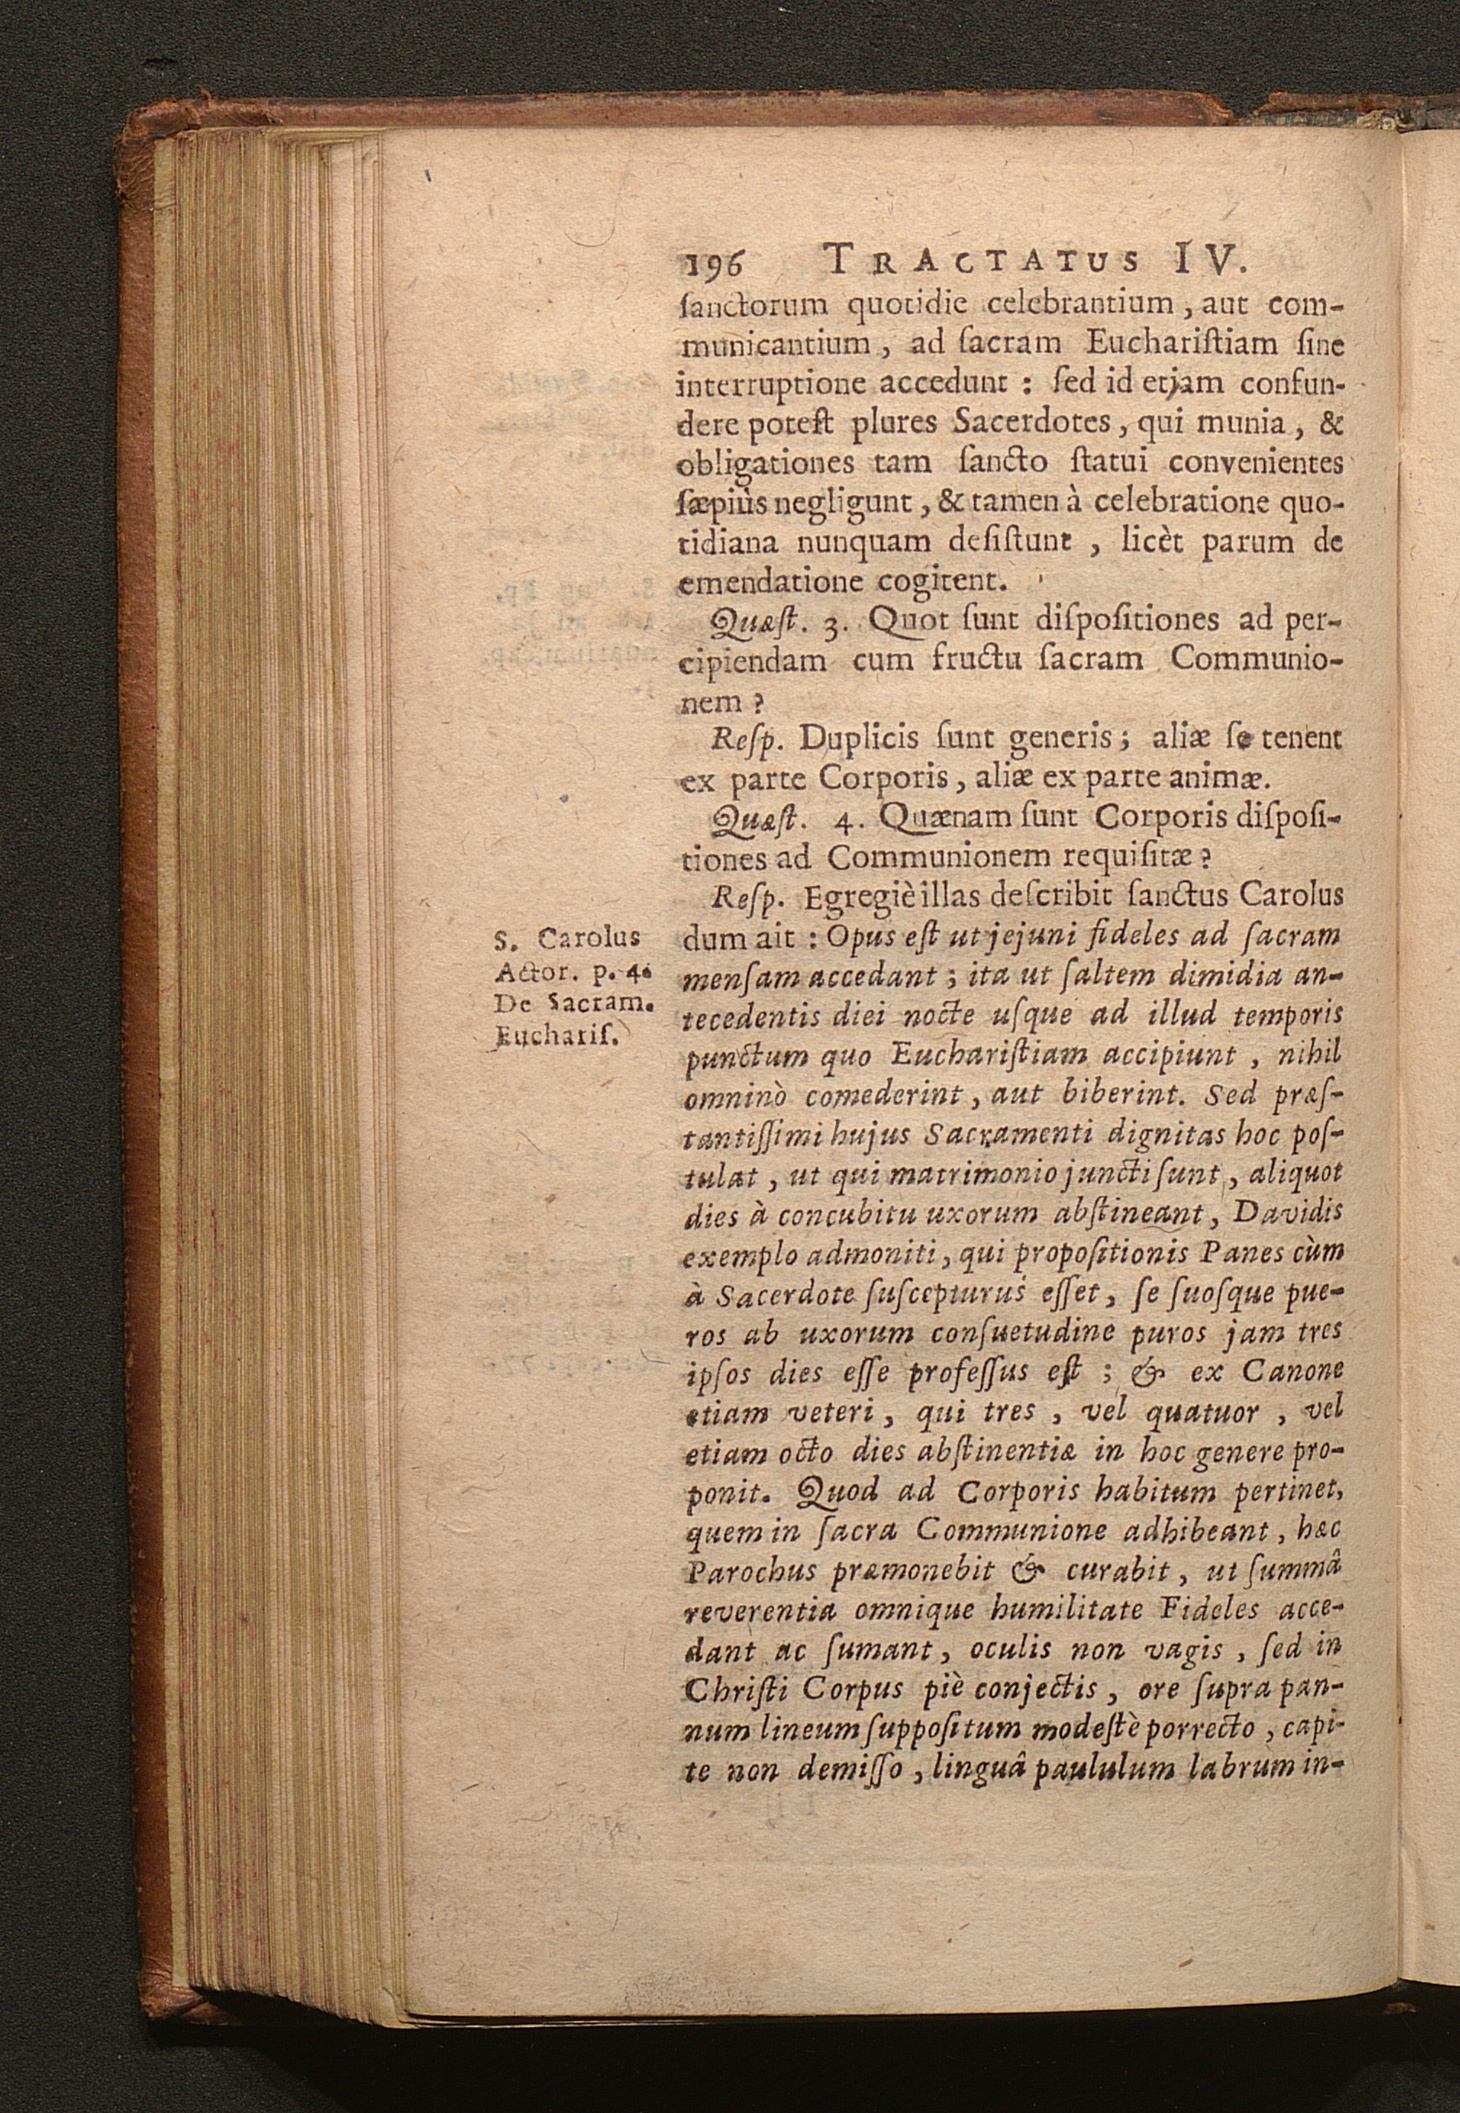 196 TRACTATUS IV.
ſanctorum quotidie celebrantium, aut com-
municantium, ad ſacram Euchariſtiam ſine
interruptione accedunt : ſed id etjam confun-
dere poteſt plures Sacerdotes, qui munia, &
obligationes tam ſancto ſtatui convenientes
ſæpiùs negligunt, & tamen à celebratione quo-
tidiana nunquam deſiſtunt , licèt parum de
emendatione cogitent.
Quæſt. 3. Quot ſunt diſpoſitiones ad per-
cipiendam cum fructu ſacram Communio-
nem ?
Reſp. Duplicis ſunt generis ; aliæ ſe tenent
ex parte Corporis, aliæ ex parte animæ.
Quæſt. 4. Quænam ſunt Corporis diſpoſi-
tiones ad Communionem requiſitæ ?
Reſp. Egregiè illas deſcribit ſanctus Carolus
dum ait : Opus eſt ut jejuni fideles ad ſacram
menſam accedant ; ita ut ſaltem dimidia an-
tecedentis diei nocte uſque ad illud temporis
punctum quo Euchariſtiam accipiunt , nihil
omninò comederint, aut biberint. Sed præſ-
tantiſſimi hujus Sacramenti dignitas hoc poſ-
tulat, ut qui matrimonio juncti ſunt, aliquot
dies à concubitu uxorum abſtineant, Davidis
exemplo admoniti, qui propoſitionis Panes cùm
à Sacerdote ſuſcepturus eſſet, ſe ſuoſque pue-
ros ab uxorum conſuetudine puros jam tres
ipſos dies eſſe profeſſus eſt ; & ex Canone
etiam veteri, qui tres , vel quatuor , vel
etiam octo dies abſtinentiæ in hoc genere pro-
ponit. Quod ad Corporis habitum pertinet,
quem in ſacra Communione adhibeant, hæc
Parochus præmonebit & curabit, ut ſummâ
reverentia omnique humilitate Fideles acce-
dant ac ſumant, oculis non vagis , ſed in
Chriſti Corpus piè conjectis, ore ſupra pan-
num lineum ſuppoſitum modeſtè porrecto, capi-
te non demiſſo, linguâ paululum labrum in-
S. Carolus
Actor. p. 4.
De Sacram.
Euchariſ.